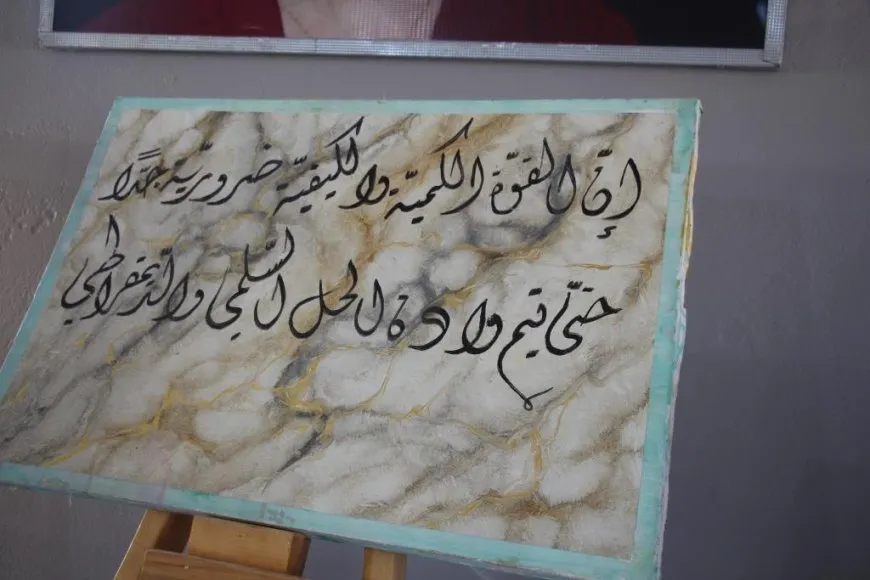 إنّ القوّة الكميّة والكيفيّة ضروريّة جدًّا
حتىّ تيتم ولادة الحل السّلمي والدّيمقراطي